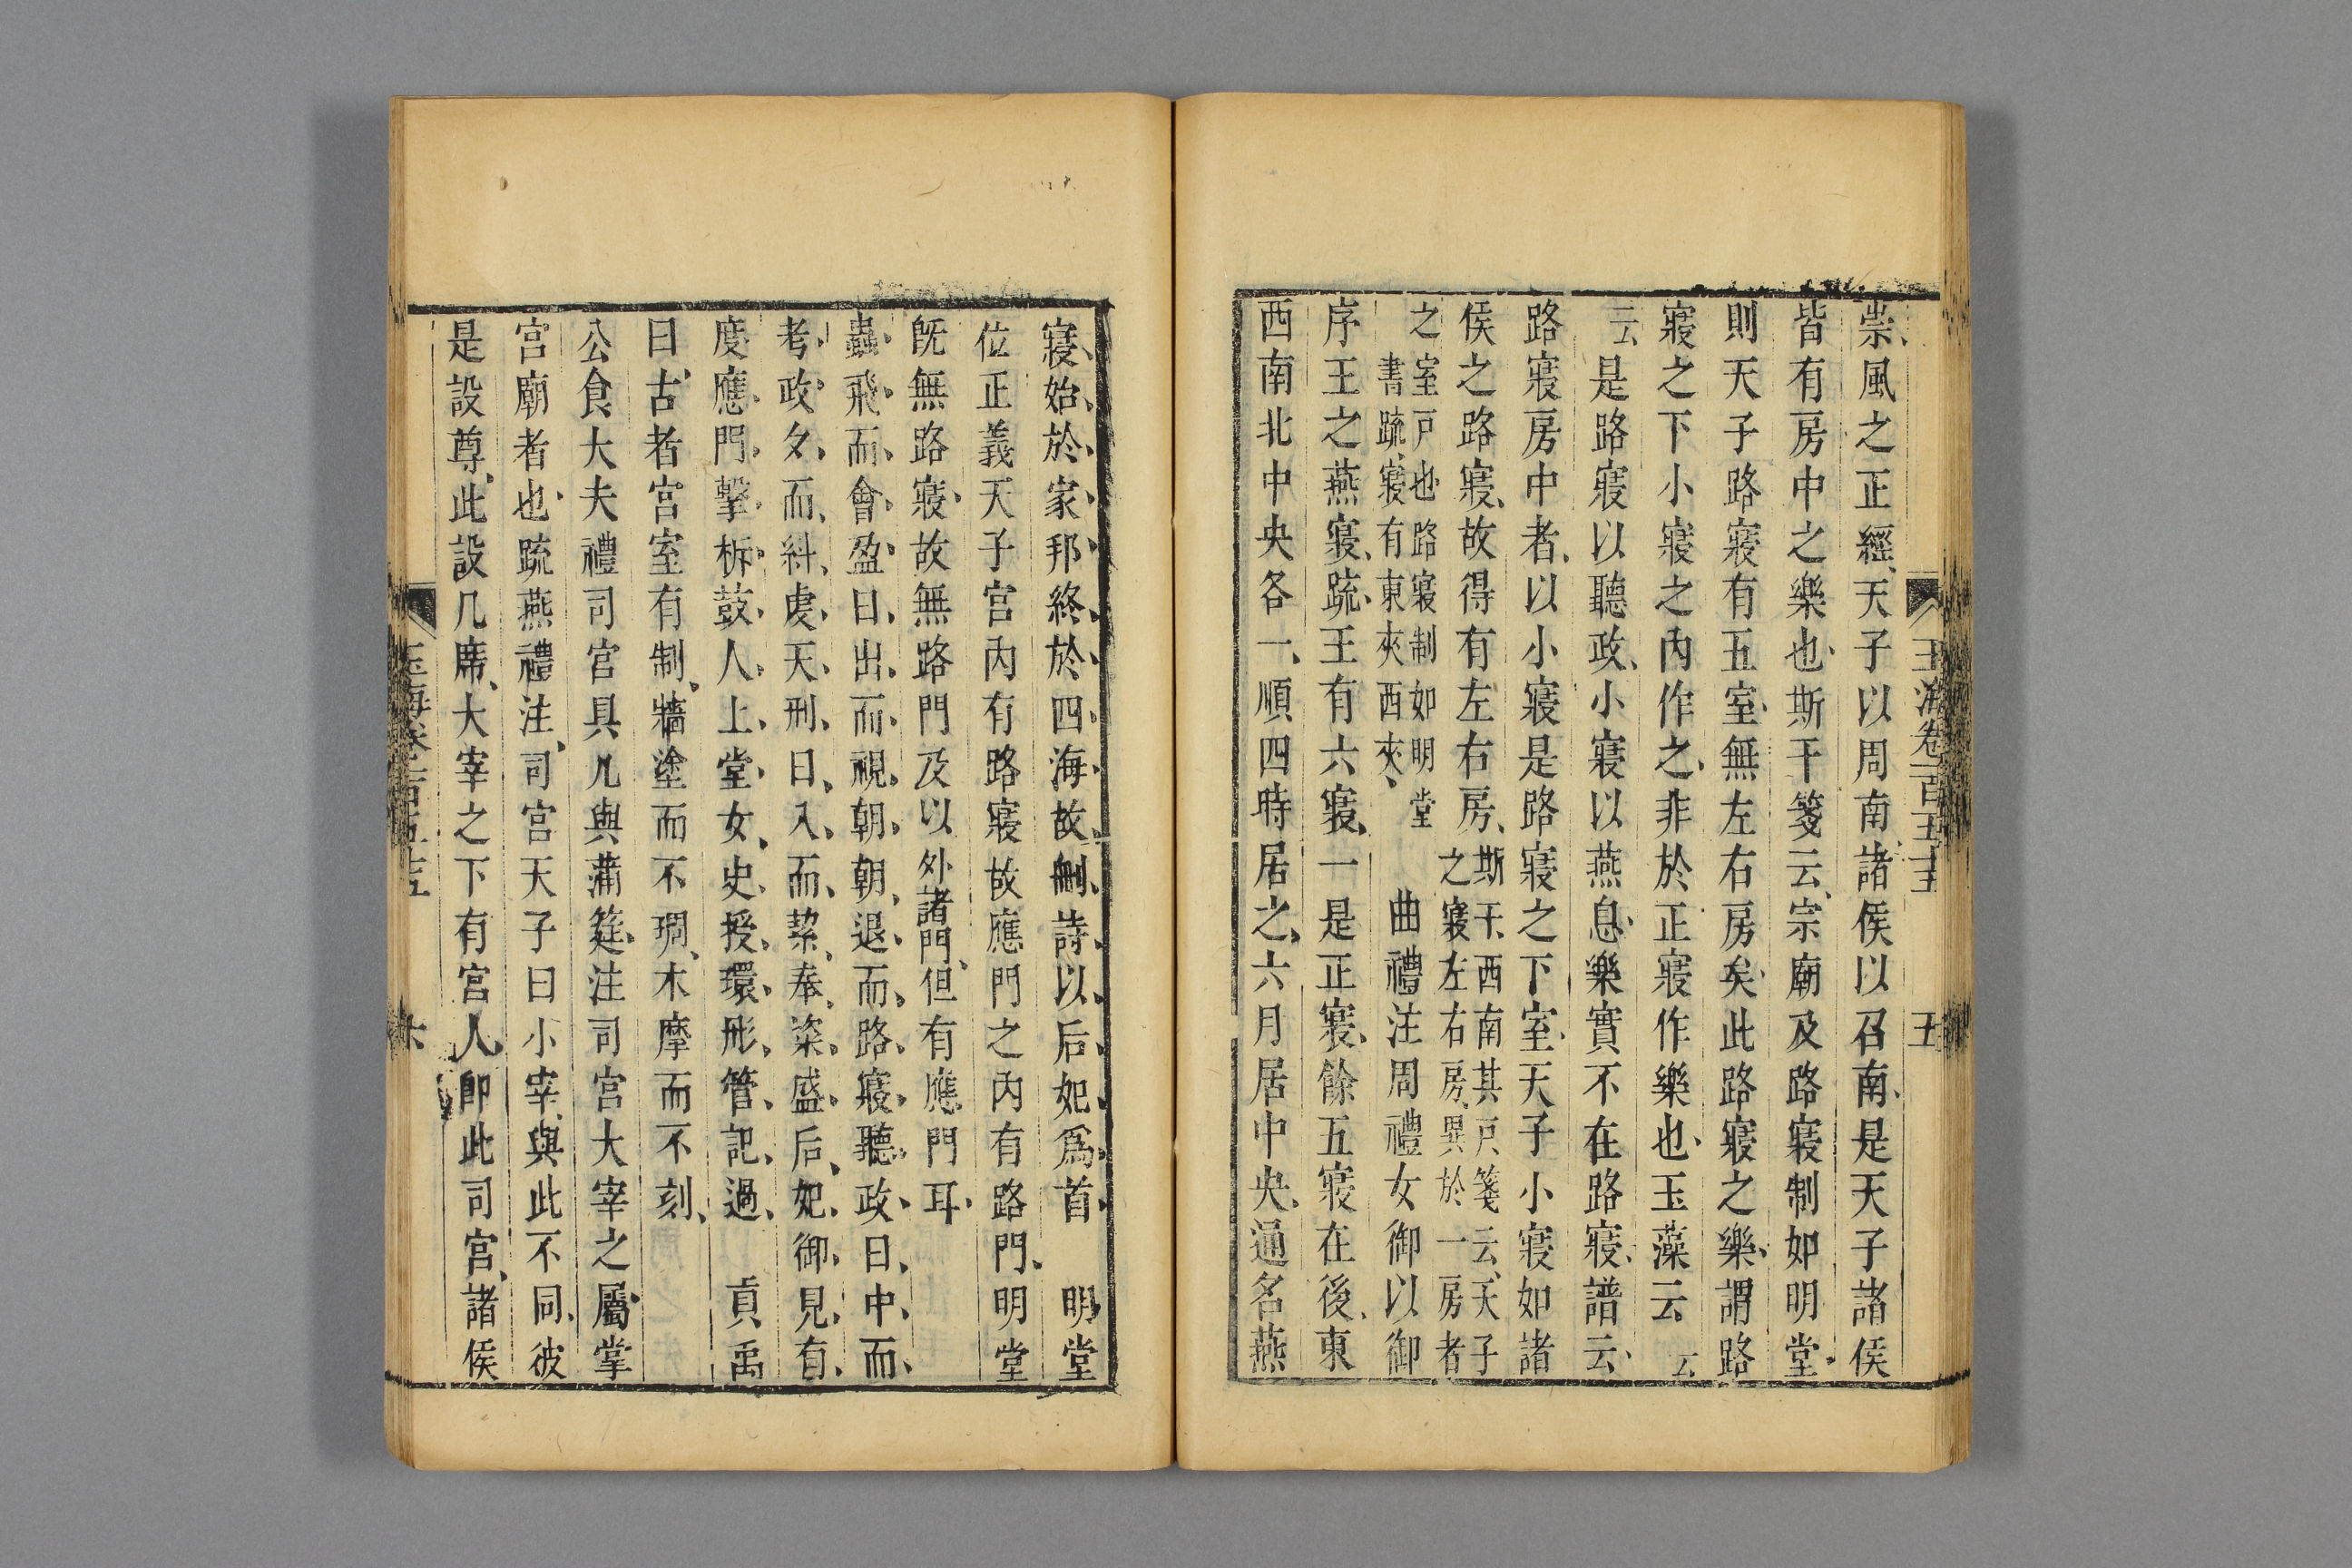 風之正經天子以周南諸侯以召南是天子諸侯
皆有房中之樂也斯干箋云宗廟及路寢制如明堂
則天子路寢有五室無左右房矣此路寢之樂謂路
寢之下小寢之內作之非於正寢作樂也玉藻云云
云是路寢以聽政小寢以燕息樂實不在路寢譜云
路寢房中者以小寢是路寢之下室天子小寢如諸
侯之路寢故得有左右房斯干西南其戶箋云天子
之寢左右房異於一房者
之室戶也路寢制如明堂
書疏寢有東夾西夾
曲禮注周禮女御以御
序王之燕寢疏王有六寢一是正寢餘五寢在後東
西南北中央各一順四時居之六月居中央通名燕
寢始於家邦終於四海故刪詩以后妃爲首　明堂
位正義天子宮內有路寢故應門之內有路門明堂
旣無路寢故無路門及以外諸門但有應門耳
蟲飛而會盈日出而視朝朝退而路寢聽政日中而
考政夕而糾虔天刑日入而絜奉粢盛后妃御見有
度應門擊柝鼓人上堂女史授環彤管記過　貢禹
曰古者宮室有制牆塗而不琱木摩而不刻
公食大夫禮司宮具几與蒲筵注司宮大宰之屬掌
宮廟者也疏燕禮注司宮天子曰小宰與此不同彼
是設尊此設几席大宰之下有宮人卽此司宮諸侯